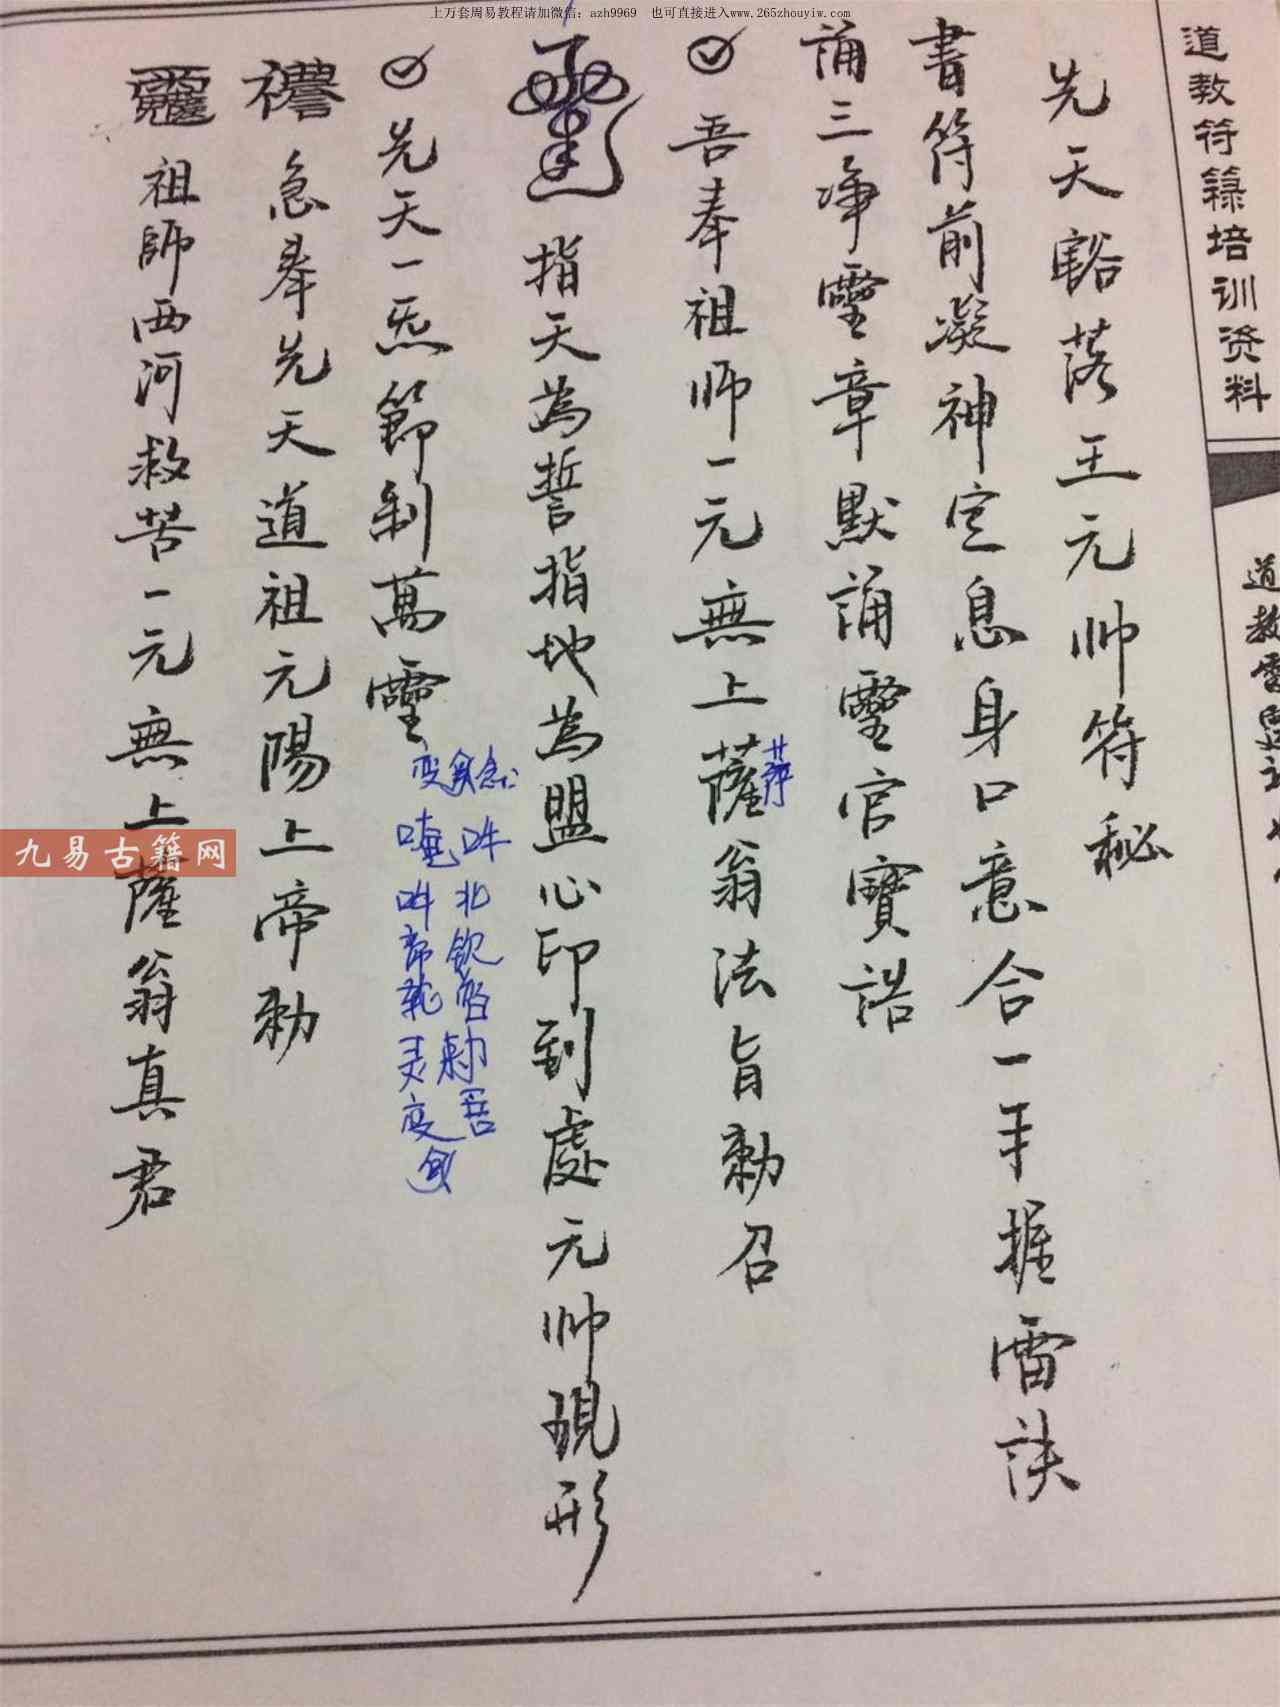 上万套周易教程请加微信：azh9969　也可直接进入www.265zhouyiw.com
道教符籙培训资料
先天豁落王元帅符秘
書符前凝神定息身口意合一手握雷訣
誦三净靈章默誦靈官寶誥
吾奉祖师一元無上薩翁法旨勅召
指天為誓指地為盟心印到處元帅現形
先天一炁節制萬靈
急奉先天道祖元陽上帝勅
祖師西河救苦一元無上薩翁真君
九易古籍网